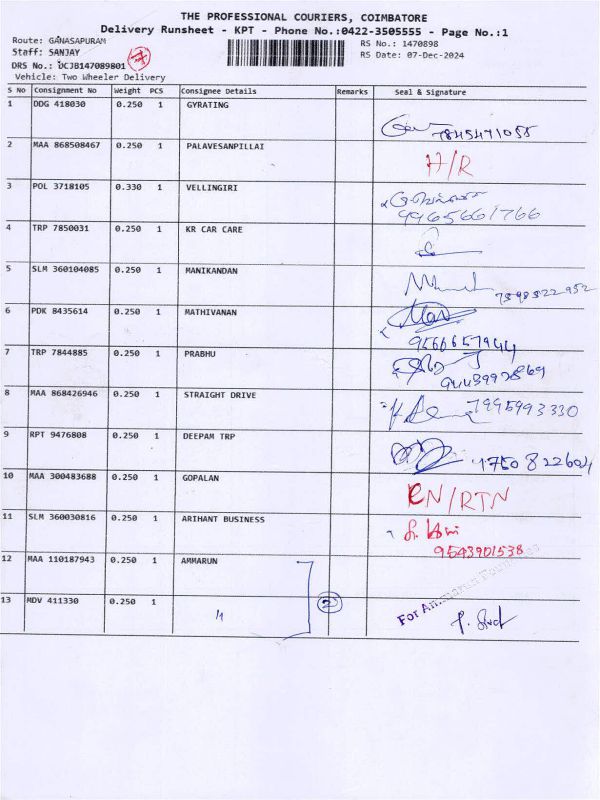 THE PROFESSIONAL COURIERS, COIMBATORE
Delivery Runsheet - KPT - Phone No.:0422-3505555 - Page No.:1
Route: GANASAPURAM
RS No.: 1470898
Staff: SANJAY
RS Date: 07-Dec-2024
DRS No.: DCJB147089801
Vehicle: Two Wheeler Delivery
S No Consignment No Weight PCS Consignee Details Remarks Seal & Signature
1 DDG 418030 0.250 1 GYRATING
7845471055
2 MAA 868508467 0.250 1 PALAVESANPILLAI
H/R
3 POL 3718105 0.330 1 VELLINGIRI
9965661766
4 TRP 7850031 0.250 1 KR CAR CARE
5 SLM 360104085 0.250 1 MANIKANDAN
7598522952
6 PDK 8435614 0.250 1 MATHIVANAN
9566657944
7 TRP 7844885 0.250 1 PRABHU
9443992869
8 MAA 868426946 0.250 1 STRAIGHT DRIVE
7995993330
9 RPT 9476808 0.250 1 DEEPAM TRP
1750822604
10 MAA 300483688 0.250 1 GOPALAN
CN/RTN
11 SLM 360030816 0.250 1 ARIHANT BUSINESS
9543901538
12 MAA 110187943 0.250 1 AMMARUN
13 MDV 411330 0.250 1 11
2
For Ammarun Foundries